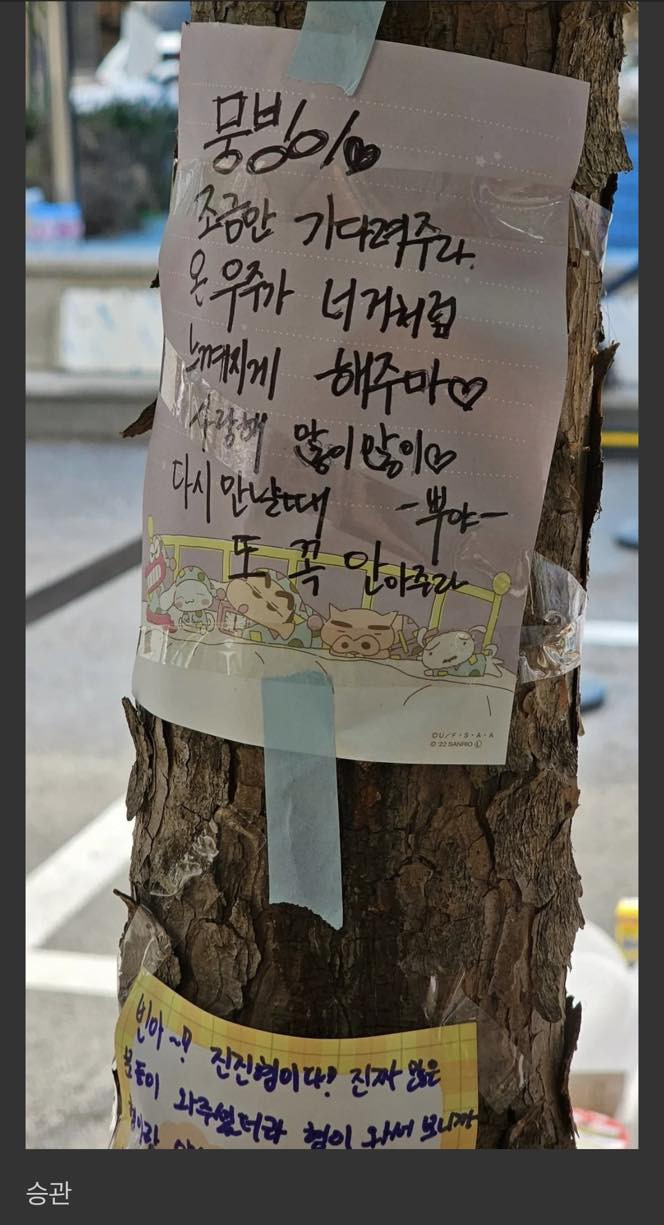 뭉빙이♡
조금만 기다려주라.
온 우주가 너 거처럼
느껴지게 해주마♡
사랑해 많이많이♡
다시 만날때 -뿌야-
또 꼭 안아주라
OU/F・S・A・A
©'22 SANRIO Ⓛ
빈아~! 진진형이다! 진짜 많은
분들이 와주셨더라 형이 와서 보니까
승관